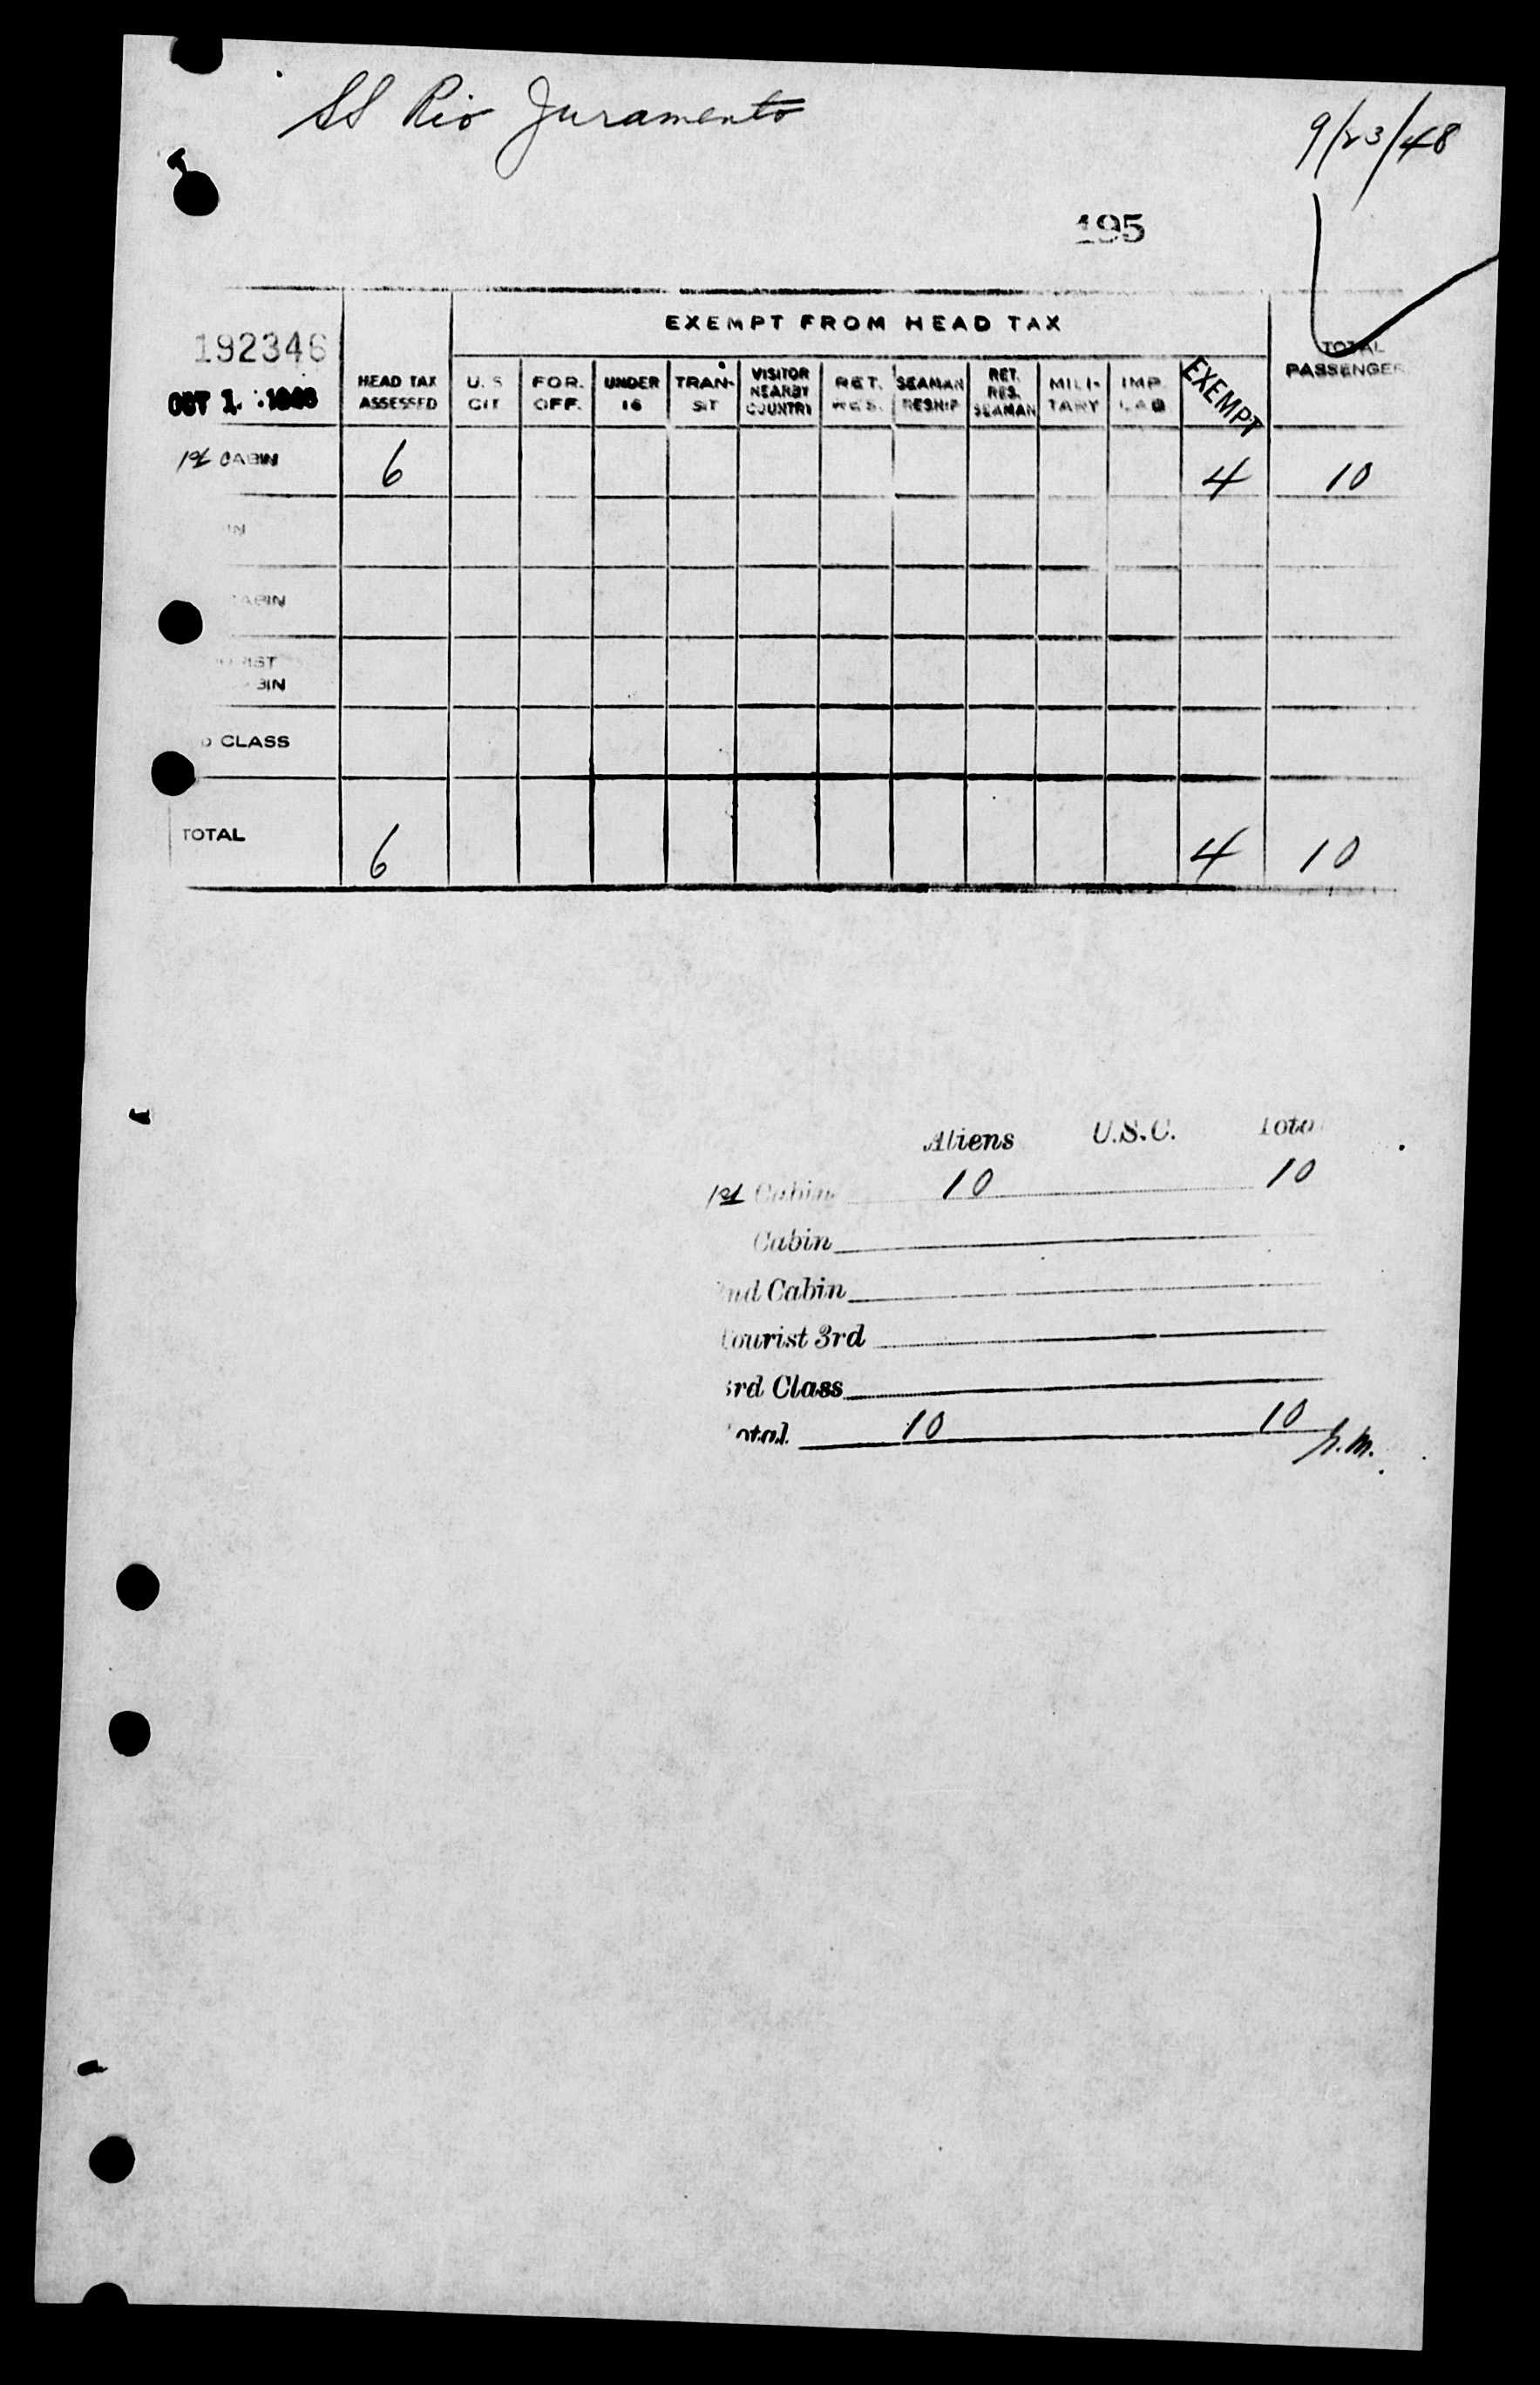 SS Rio Juramento
9/23/48
195
EXEMPT FROM HEAD TAX
192346
OCT 1
HEAD TAX ASSESSED
U. S CIT
FOR. OFF.
UNDER 16
TRAN-SIT
VISITOR NEARBY COUNTRY
RET. RES.
SEAMAN RESHIP
RET. RES. SEAMAN
MILI-TARY
IMP LAB
EXEMPT
TOTAL PASSENGER
1st CABIN 6 4 10
IN
ABIN
RIST
BIN
D CLASS
TOTAL 6 4 10
Aliens U.S.C. Tota
1st Cabin 10 10
Cabin
nd Cabin
tourist 3rd
3rd Class
otal 10 10